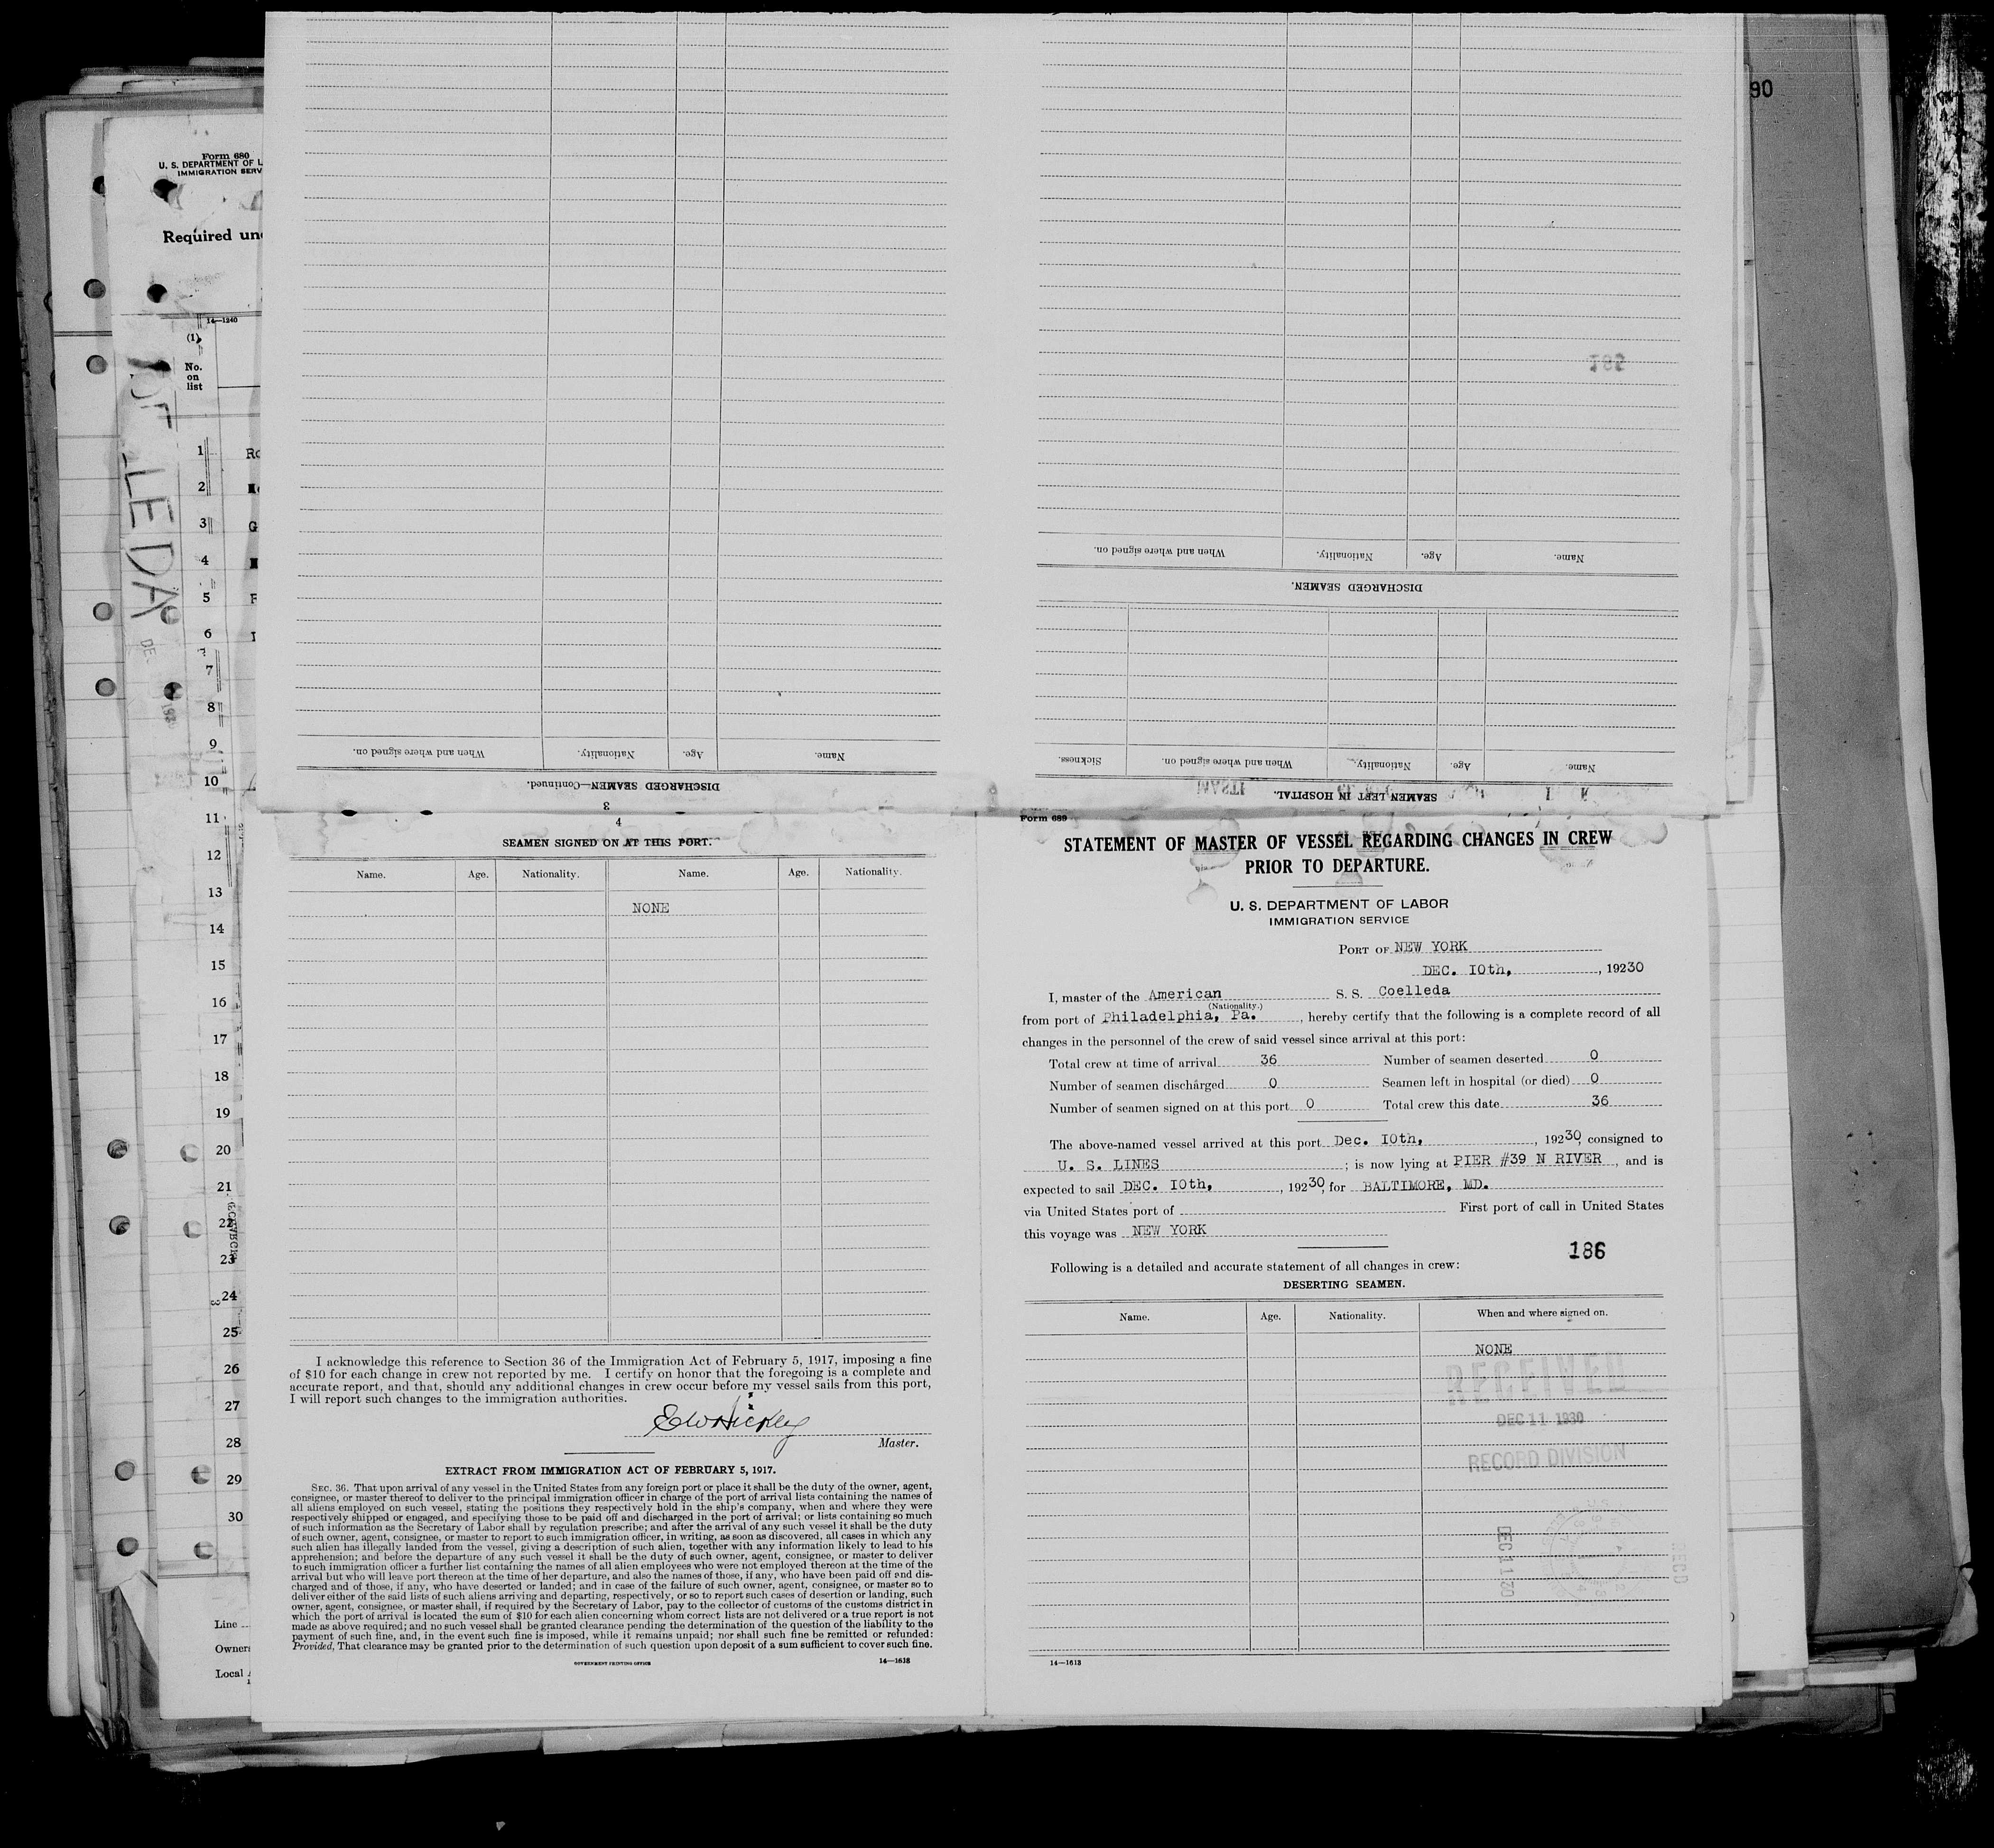 90
Form 680
U. S. DEPARTMENT OF L
IMMIGRATION SERV
Required und
14—1240
(1)
No.
on
list
LEDA
1
2
3
4
5
6
7
8
9
10
11
12
13
14
15
16
17
18
19
20
21
22
23
24
25
26
27
28
29
30
Line
Owners
Local
Name. Age. Nationality. When and where signed on.
DISCHARGED SEAMEN—Continued.
3
Name. Age. Nationality. When and where signed on.
DISCHARGED SEAMEN.
Name. Age. Nationality. When and where signed on. Sickness.
SEAMEN LEFT IN HOSPITAL.
4
SEAMEN SIGNED ON AT THIS PORT.
Name. Age. Nationality. Name. Age. Nationality.
NONE
I acknowledge this reference to Section 36 of the Immigration Act of February 5, 1917, imposing a fine
of $10 for each change in crew not reported by me. I certify on honor that the foregoing is a complete and
accurate report, and that, should any additional changes in crew occur before my vessel sails from this port,
I will report such changes to the immigration authorities.
Master.
EXTRACT FROM IMMIGRATION ACT OF FEBRUARY 5, 1917.
SEC. 36. That upon arrival of any vessel in the United States from any foreign port or place it shall be the duty of the owner, agent,
consignee, or master thereof to deliver to the principal immigration officer in charge of the port of arrival lists containing the names of
all aliens employed on such vessel, stating the positions they respectively hold in the ship's company, when and where they were
respectively shipped or engaged, and specifying those to be paid off and discharged in the port of arrival; or lists containing so much
of such information as the Secretary of Labor shall by regulation prescribe; and after the arrival of any such vessel it shall be the duty
of such owner, agent, consignee, or master to report to such immigration officer, in writing, as soon as discovered, all cases in which any
such alien has illegally landed from the vessel, giving a description of such alien, together with any information likely to lead to his
apprehension; and before the departure of any such vessel it shall be the duty of such owner, agent, consignee, or master to deliver
to such immigration officer a further list containing the names of all alien employees who were not employed thereon at the time of the
arrival but who will leave port thereon at the time of her departure, and also the names of those, if any, who have been paid off and dis-
charged and of those, if any, who have deserted or landed; and in case of the failure of such owner, agent, consignee, or master so to
deliver either of the said lists of such aliens arriving and departing, respectively, or so to report such cases of desertion or landing, such
owner, agent, consignee, or master shall, if required by the Secretary of Labor, pay to the collector of customs of the customs district in
which the port of arrival is located the sum of $10 for each alien concerning whom correct lists are not delivered or a true report is not
made as above required; and no such vessel shall be granted clearance pending the determination of the question of the liability to the
payment of such fine, and, in the event such fine is imposed, while it remains unpaid; nor shall such fine be remitted or refunded:
Provided, That clearance may be granted prior to the determination of such question upon deposit of a sum sufficient to cover such fine.
GOVERNMENT PRINTING OFFICE 14—1613
Form 689
STATEMENT OF MASTER OF VESSEL REGARDING CHANGES IN CREW
PRIOR TO DEPARTURE.
U. S. DEPARTMENT OF LABOR
IMMIGRATION SERVICE
PORT OF NEW YORK
DEC. 10th, , 19230
I, master of the American S. S. Coelleda
(Nationality.)
from port of Philadelphia, Pa. , hereby certify that the following is a complete record of all
changes in the personnel of the crew of said vessel since arrival at this port:
Total crew at time of arrival 36 Number of seamen deserted 0
Number of seamen discharged 0 Seamen left in hospital (or died) 0
Number of seamen signed on at this port 0 Total crew this date 36
The above-named vessel arrived at this port Dec. 10th, , 19230, consigned to
U. S. LINES ; is now lying at PIER #39 N RIVER , and is
expected to sail DEC. 10th, , 19230, for BALTIMORE, MD.
via United States port of First port of call in United States
this voyage was NEW YORK
186
Following is a detailed and accurate statement of all changes in crew:
DESERTING SEAMEN.
Name. Age. Nationality. When and where signed on.
NONE
RECEIVED
DEC 11 1930
RECORD DIVISION
DEC 11 30
RECD
14—1613